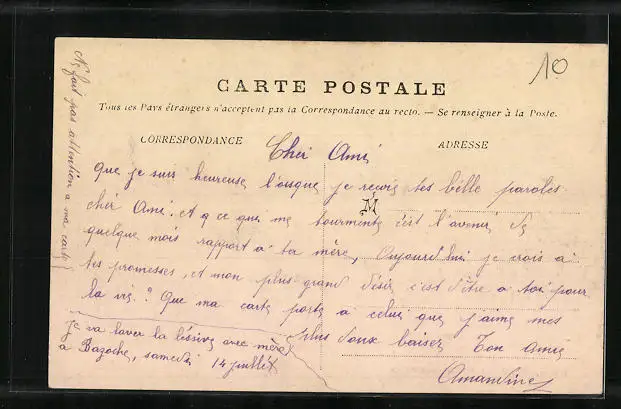 10
CARTE POSTALE
Tous les Pays étrangers n'acceptent pas la Correspondance au recto. — Se renseigner à la Poste.
CORRESPONDANCE
ADRESSE
Cher Ami
que je suis heureuse l'orsque je reçois tes bélle paroles
cher Ami. et ce qui me tourmente c'est l'avenir,
quelque mois rapport a ta mère, Aujourd'hui je crois a
tes promesses, et mon plus grand désir c'est d'être a toi pour
la vie. Que ma carte porte a celui que j'aime mes
plus doux baiser Ton amie
Amandine
je va laver la léssive avec mère
a Bazoche, samedi 14 juillet
N fait pas attention a ma carte
M